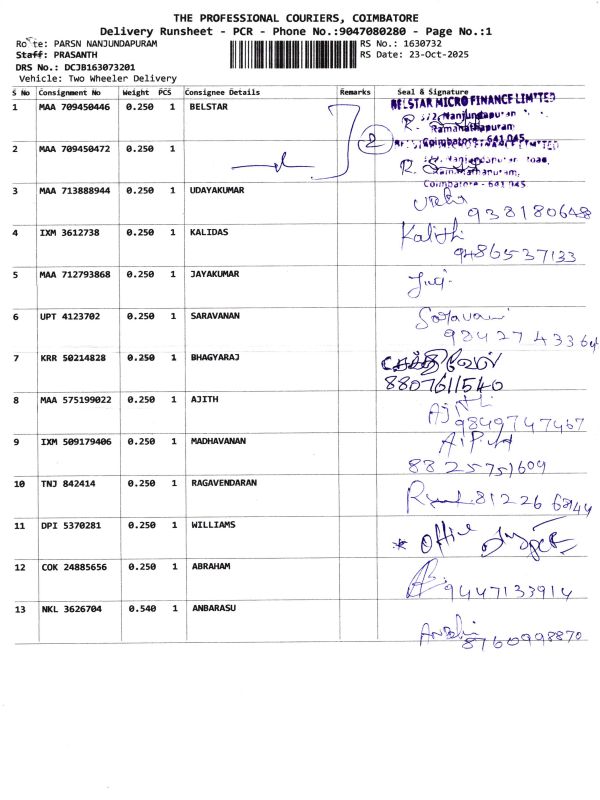 THE PROFESSIONAL COURIERS, COIMBATORE
Delivery Runsheet - PCR - Phone No.:9047080280 - Page No.:1
Route: PARSN NANJUNDAPURAM RS No.: 1630732
Staff: PRASANTH RS Date: 23-Oct-2025
DRS No.: DCJB163073201
Vehicle: Two Wheeler Delivery
S No Consignment No Weight PCS Consignee Details Remarks Seal & Signature
1 MAA 709450446 0.250 1 BELSTAR BELSTAR MICRO FINANCE LIMITED
Nanjundapuram
Ramanathapuram
2 MAA 709450472 0.250 1 2 Coimbatore - 641 045
R. Nanjundapuram Road,
Ramanathapuram,
Coimbatore - 641 045
3 MAA 713888944 0.250 1 UDAYAKUMAR
938180648
4 IXM 3612738 0.250 1 KALIDAS Kalithi
9486537133
5 MAA 712793868 0.250 1 JAYAKUMAR
6 UPT 4123702 0.250 1 SARAVANAN
98427433
7 KRR 50214828 0.250 1 BHAGYARAJ
8807611540
8 MAA 575199022 0.250 1 AJITH
9849747467
9 IXM 509179406 0.250 1 MADHAVANAN
8825751609
10 TNJ 842414 0.250 1 RAGAVENDARAN 81226
11 DPI 5370281 0.250 1 WILLIAMS * Office
12 COK 24885656 0.250 1 ABRAHAM 9447133914
13 NKL 3626704 0.540 1 ANBARASU
8760998870